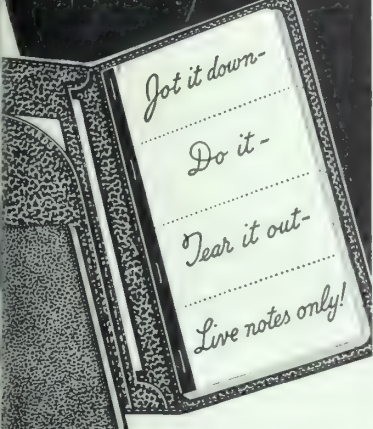 Jot it down-
Do it-
Tear it out-
Live notes only!